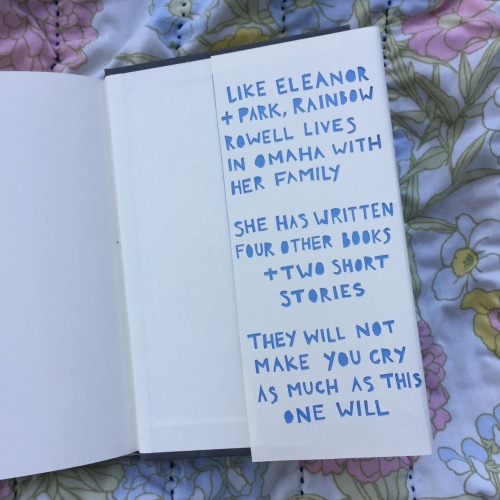 LIKE ELEANOR
+ PARK, RAINBOW
ROWELL LIVES
IN OMAHA WITH
HER FAMILY
SHE HAS WRITTEN
FOUR OTHER BOOKS
+ TWO SHORT
STORIES
THEY WILL NOT
MAKE YOU CRY
AS MUCH AS THIS
ONE WILL